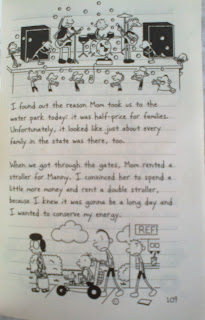 I found out the reason Mom took us to the
water park today: it was half-price for families.
Unfortunately, it looked like just about every
family in the state was there, too.
When we got through the gates, Mom rented a
stroller for Manny. I convinced her to spend a
little more money and rent a double stroller,
because I knew it was gonna be a long day and
I wanted to conserve my energy.
REF
109